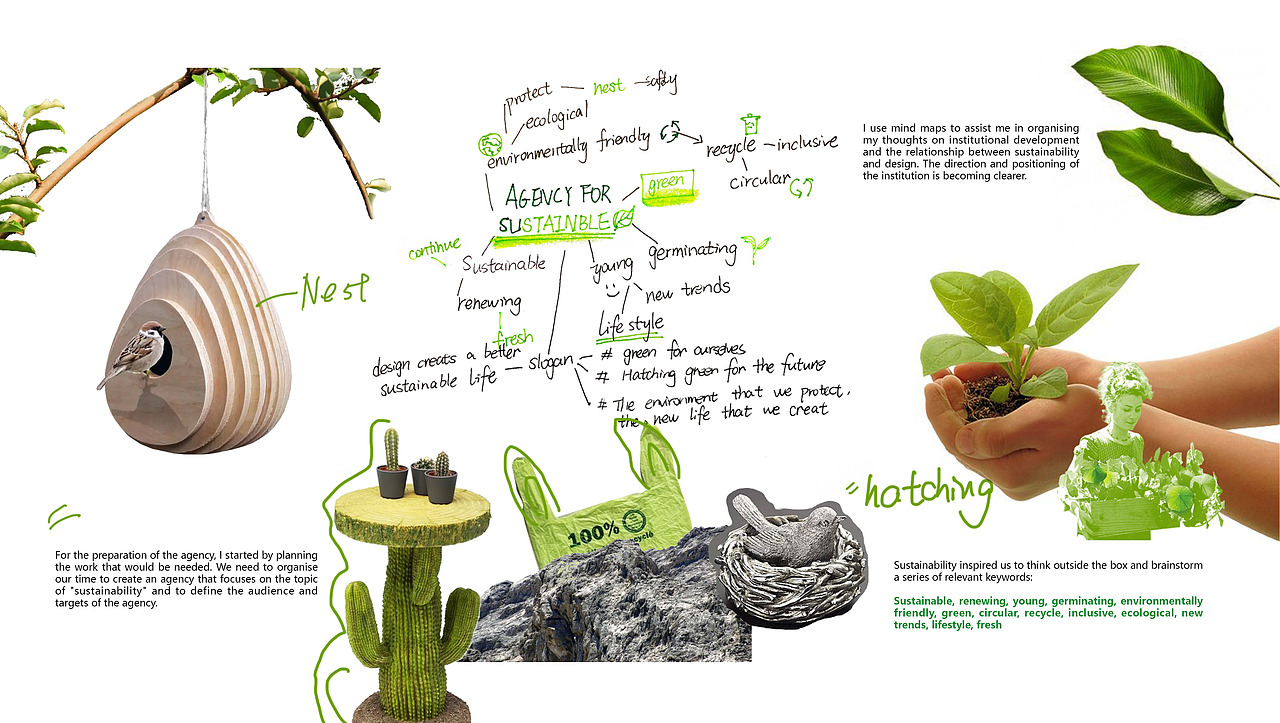 protect — nest — safty
ecological
environmentally friendly
recycle — inclusive
circular
AGENCY FOR
SUSTAINBLE
green
continue
Sustainable
young
germinating
renewing
new trends
fresh
Life style
design creats a better
sustainable life — slogan
# green for ourselves
# Hatching green for the future
# The environment that we protect,
the new life that we creat
I use mind maps to assist me in organising
my thoughts on institutional development
and the relationship between sustainability
and design. The direction and positioning of
the institution is becoming clearer.
Nest
100%
hatching
For the preparation of the agency, I started by planning
the work that would be needed. We need to organise
our time to create an agency that focuses on the topic
of "sustainability" and to define the audience and
targets of the agency.
Sustainability inspired us to think outside the box and brainstorm
a series of relevant keywords:
Sustainable, renewing, young, germinating, environmentally
friendly, green, circular, recycle, inclusive, ecological, new
trends, lifestyle, fresh